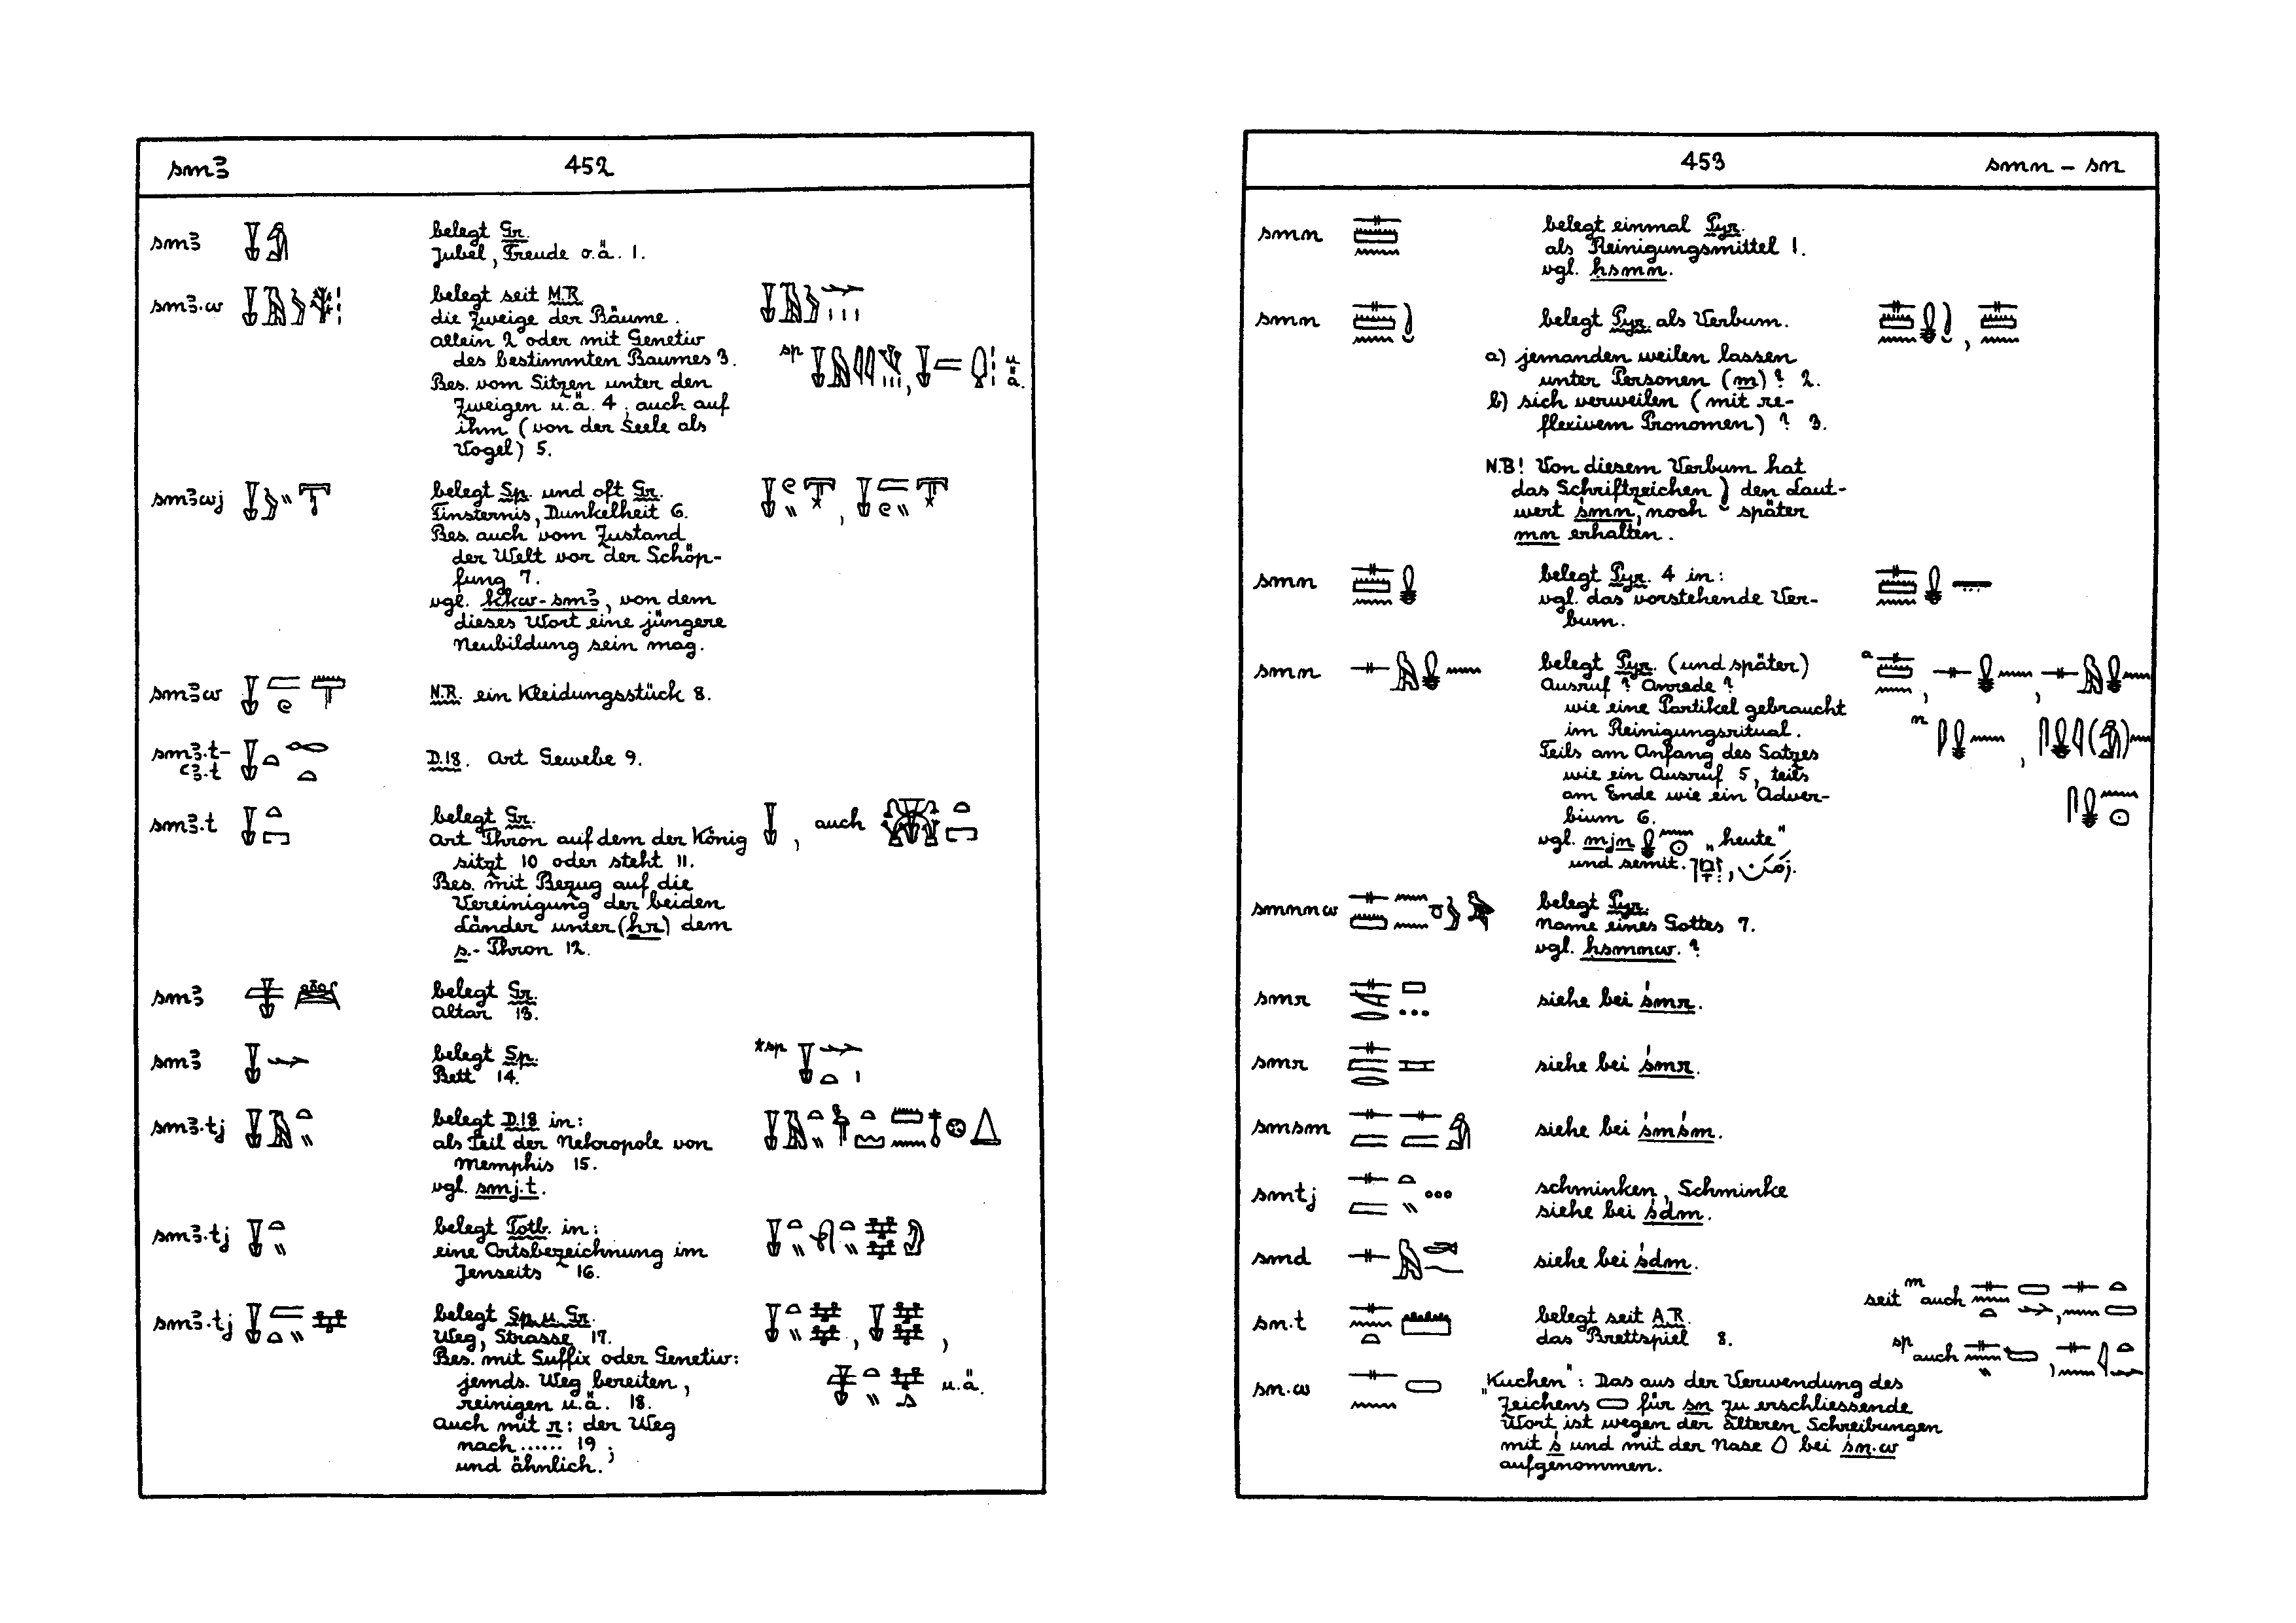 smꜣ 452
smꜣ belegt Gr.
Jubel, Freude o.ä. 1.
smꜣ.w belegt seit M.R.
die Zweige der Bäume.
allein 2 oder mit Genetiv
des bestimmten Baumes 3.
sp u.ä.
Bes. vom Sitzen unter den
Zweigen u.ä. 4; auch auf
ihm (von der Seele als
Vogel) 5.
smꜣwj belegt Sp. und oft Gr.
Finsternis, Dunkelheit 6.
Bes. auch vom Zustand
der Welt vor der Schöp-
fung 7.
vgl. kkw-smꜣ, von dem
dieses Wort eine jüngere
Neubildung sein mag.
smꜣw N.R. ein Kleidungsstück 8.
smꜣ.t-
ꜥꜣ.t D.18. Art Gewebe 9.
smꜣ.t belegt Gr.
Art Thron auf dem der König , auch
sitzt 10 oder steht 11.
Bes. mit Bezug auf die
Vereinigung der beiden
Länder unter (ẖr) dem
s.-Thron 12.
smꜣ belegt Gr.
Altar 13.
smꜣ belegt Sp. *sp
Bett 14.
smꜣ.tj belegt D.18 in:
als Teil der Nekropole von
Memphis 15.
vgl. smj.t.
smꜣ.tj belegt Totb. in:
eine Ortsbezeichnung im
Jenseits 16.
smꜣ.tj belegt Sp. u. Gr.
Weg, Strasse 17.
Bes. mit Suffix oder Genetiv:
jemds. Weg bereiten, u.ä.
reinigen u.ä. 18.
Auch mit r: der Weg
nach ...... 19;
und ähnlich.
453 smn – sn
smn belegt einmal Pyr.
als Reinigungsmittel 1.
vgl. ḥsmn.
smn belegt Pyr. als Verbum.
a) jemanden weilen lassen
unter Personen (m)? 2.
b) sich verweilen (mit re-
flexivem Pronomen)? 3.
N.B! Von diesem Verbum hat
das Schriftzeichen den Laut-
wert śmn, noch später
mn erhalten.
smn belegt Pyr. 4 in:
vgl. das vorstehende Ver-
bum.
smn belegt Pyr. (und später) a
Ausruf? Anrede?
wie eine Partikel gebraucht n
im Reinigungsritual.
Teils am Anfang des Satzes
wie ein Ausruf 5, teils
am Ende wie ein Adver-
bium 6.
vgl. mjn „heute"
und semit.
smnnw belegt Pyr.
Name eines Gottes 7.
vgl. ḥsmnw.?
smr siehe bei śmr.
smr siehe bei śmr.
smsm siehe bei śmśm.
smtj schminken, Schminke
siehe bei śdm.
smd siehe bei śdm.
sn.t belegt seit A.R. seit m auch
das Brettspiel 8. sp auch
sn.w „Kuchen": Das aus der Verwendung des
Zeichens für sn zu erschliessende
Wort ist wegen der älteren Schreibungen
mit ś und mit der Nase bei śn.w
aufgenommen.